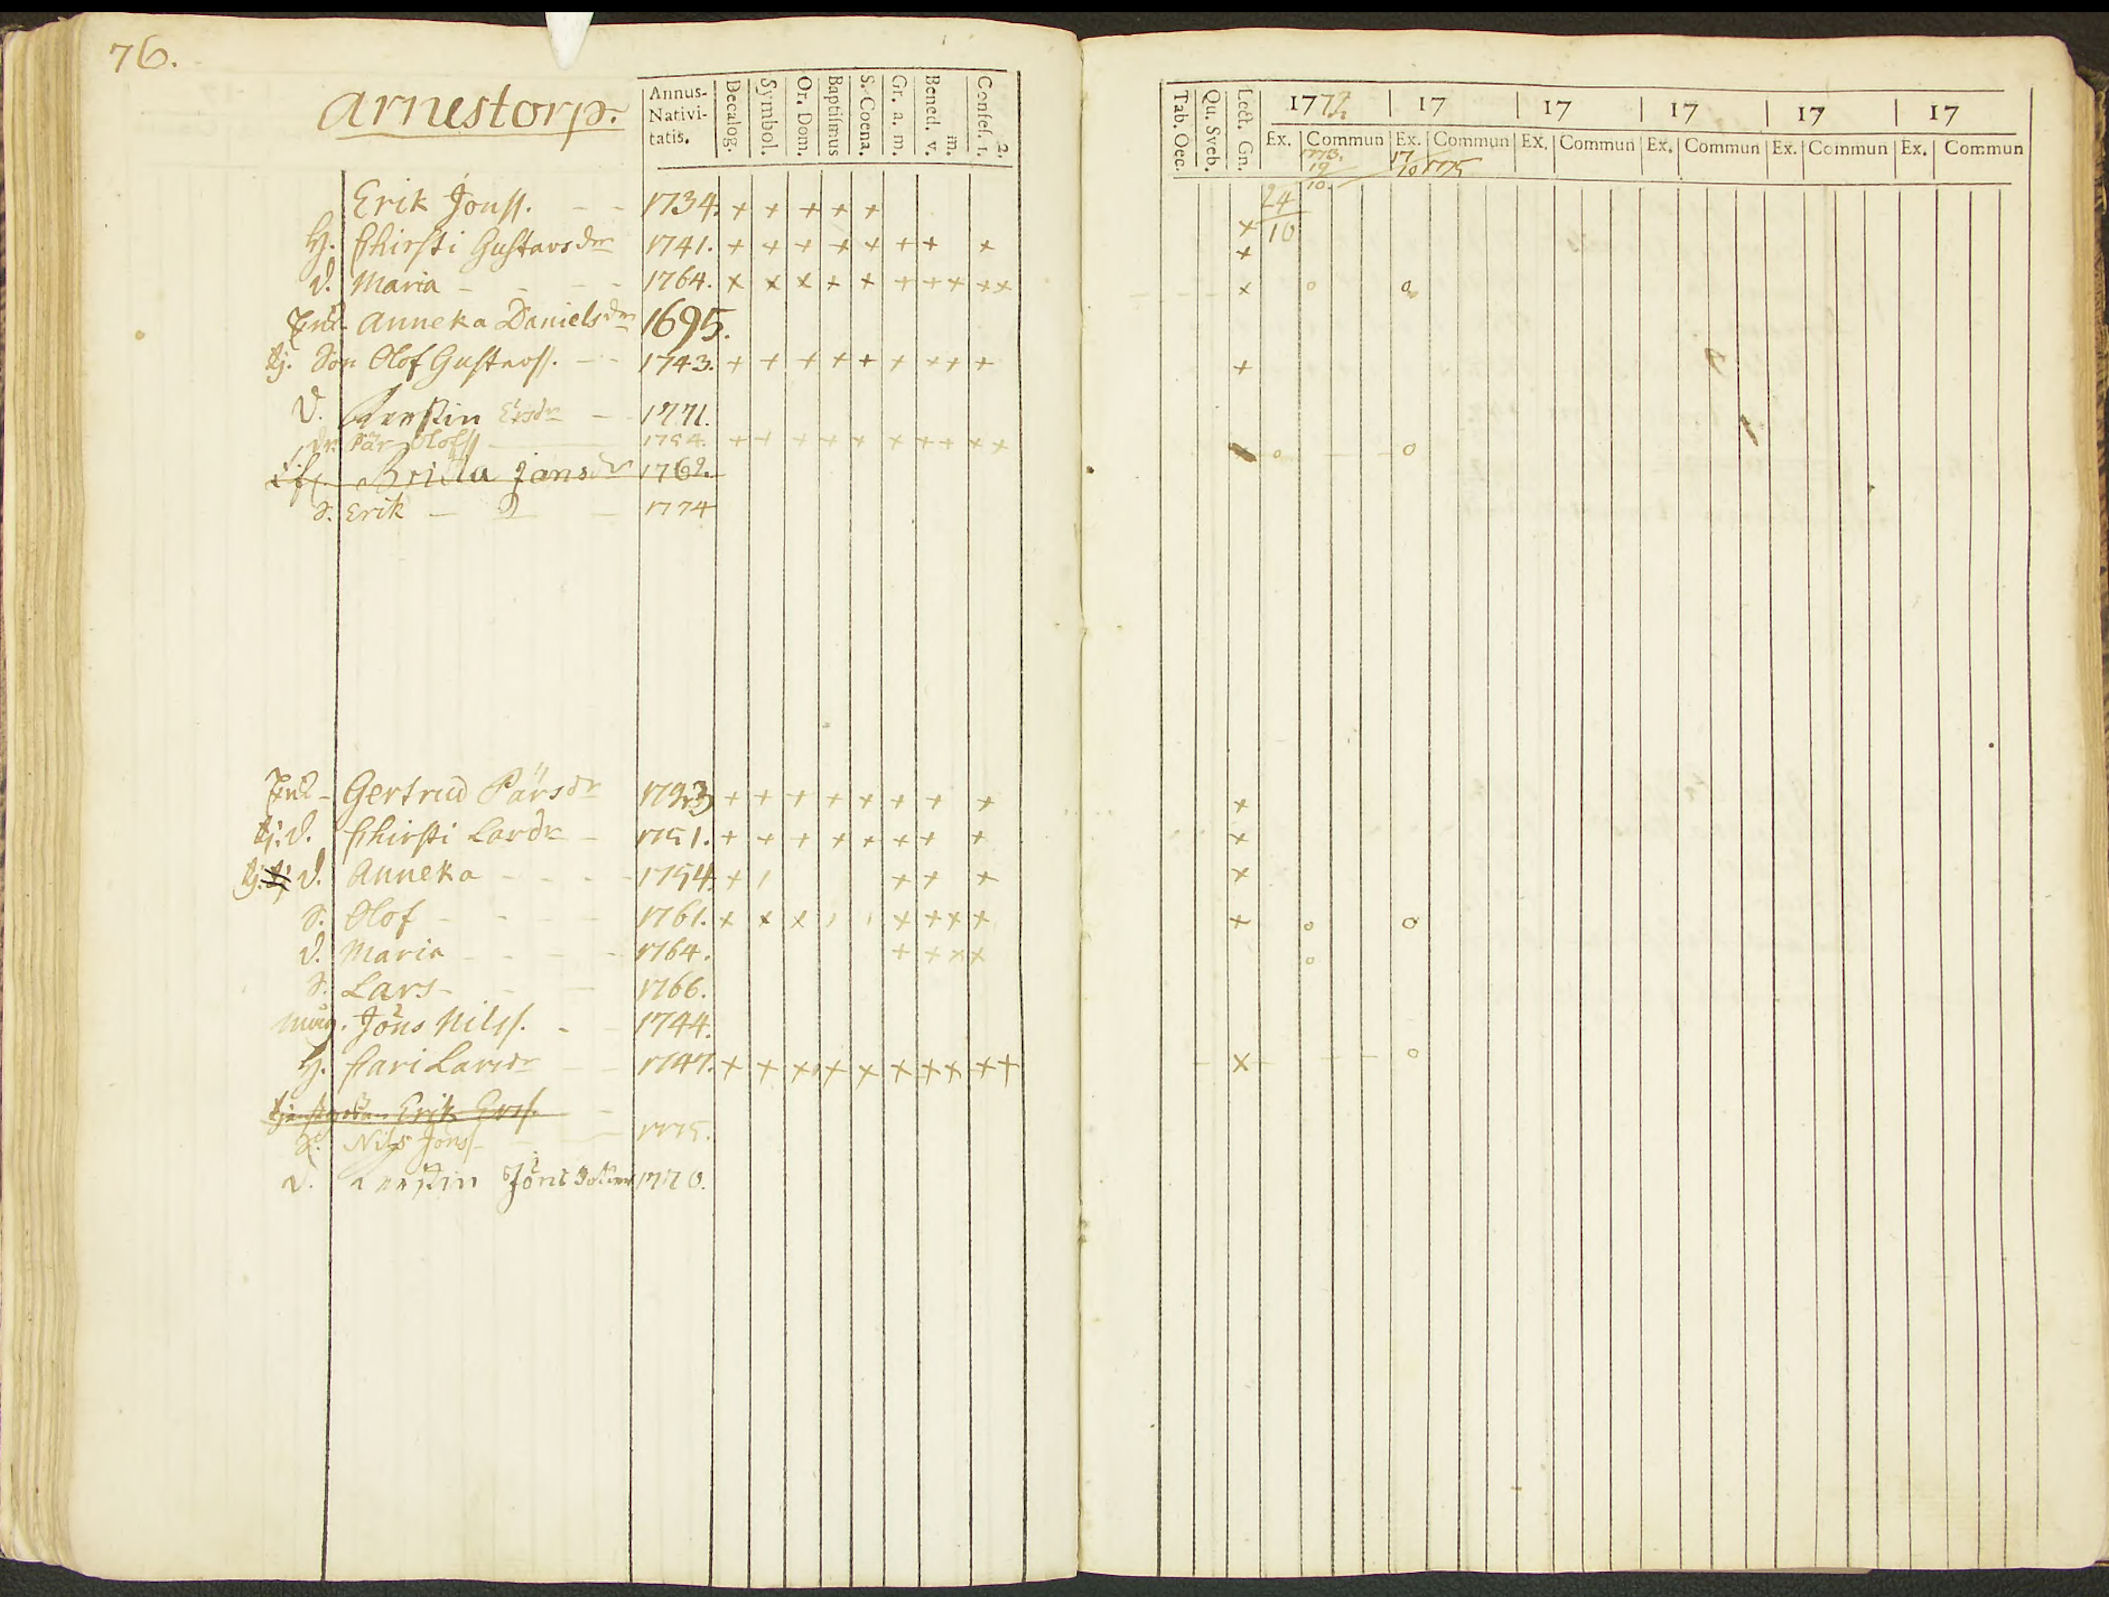 76.
Arnestorp.
Annus- Nativi- tatis. Decalog. Symbol. Or. Dom. Baptismus S. Coena. Gr. a. m. Bened. v. m. Confes. 1. 2.
Erik Jonss. - - 1734. + + + + +
H. Chirsti Gustavsdr 1741. + + + + + + + +
D. Maria - - - - 1764. x x x + + + + + + +
Enk. Anneka Danielsdr 1695.
tj. Son Olof Gustavss. - - 1743. + + + + + + + + +
D. Kerstin Ersdr - 1771.
dr. Pär Olofss - 1754. + + + + + + + + + +
Britta Jansdr 1762.
S. Erik - - 1774
Enk - Gertrud Pärsdr + + + + + + + +
tj. D. Chirsti Larsdr - 1751. + + + + + + + +
tj. D. Anneka - - - - 1754. + / + + +
S. Olof - - - 1761. + x x / / + + + +
D. Maria - - - - 1764. + + x x
S. Lars - - - 1766.
måg. Jöns Nilss. - - 1744.
H. Cari Larsdr - - 1747. + + + + + + + + + +
Erik Erss. -
S. Nils Jönss - 1775.
D. Kerstin Jöns dotter 1770.
Tab. Oec. Qu. Sveb. Lect. Gn. 177 17 17 17 17 17
Ex. Commun Ex. Commun Ex. Commun Ex. Commun Ex. Commun Ex. Commun
1773. 19/10. 17/10 1775
24/10
+
+
x o o
+
o o
+
+
x
+ o o
o
x o